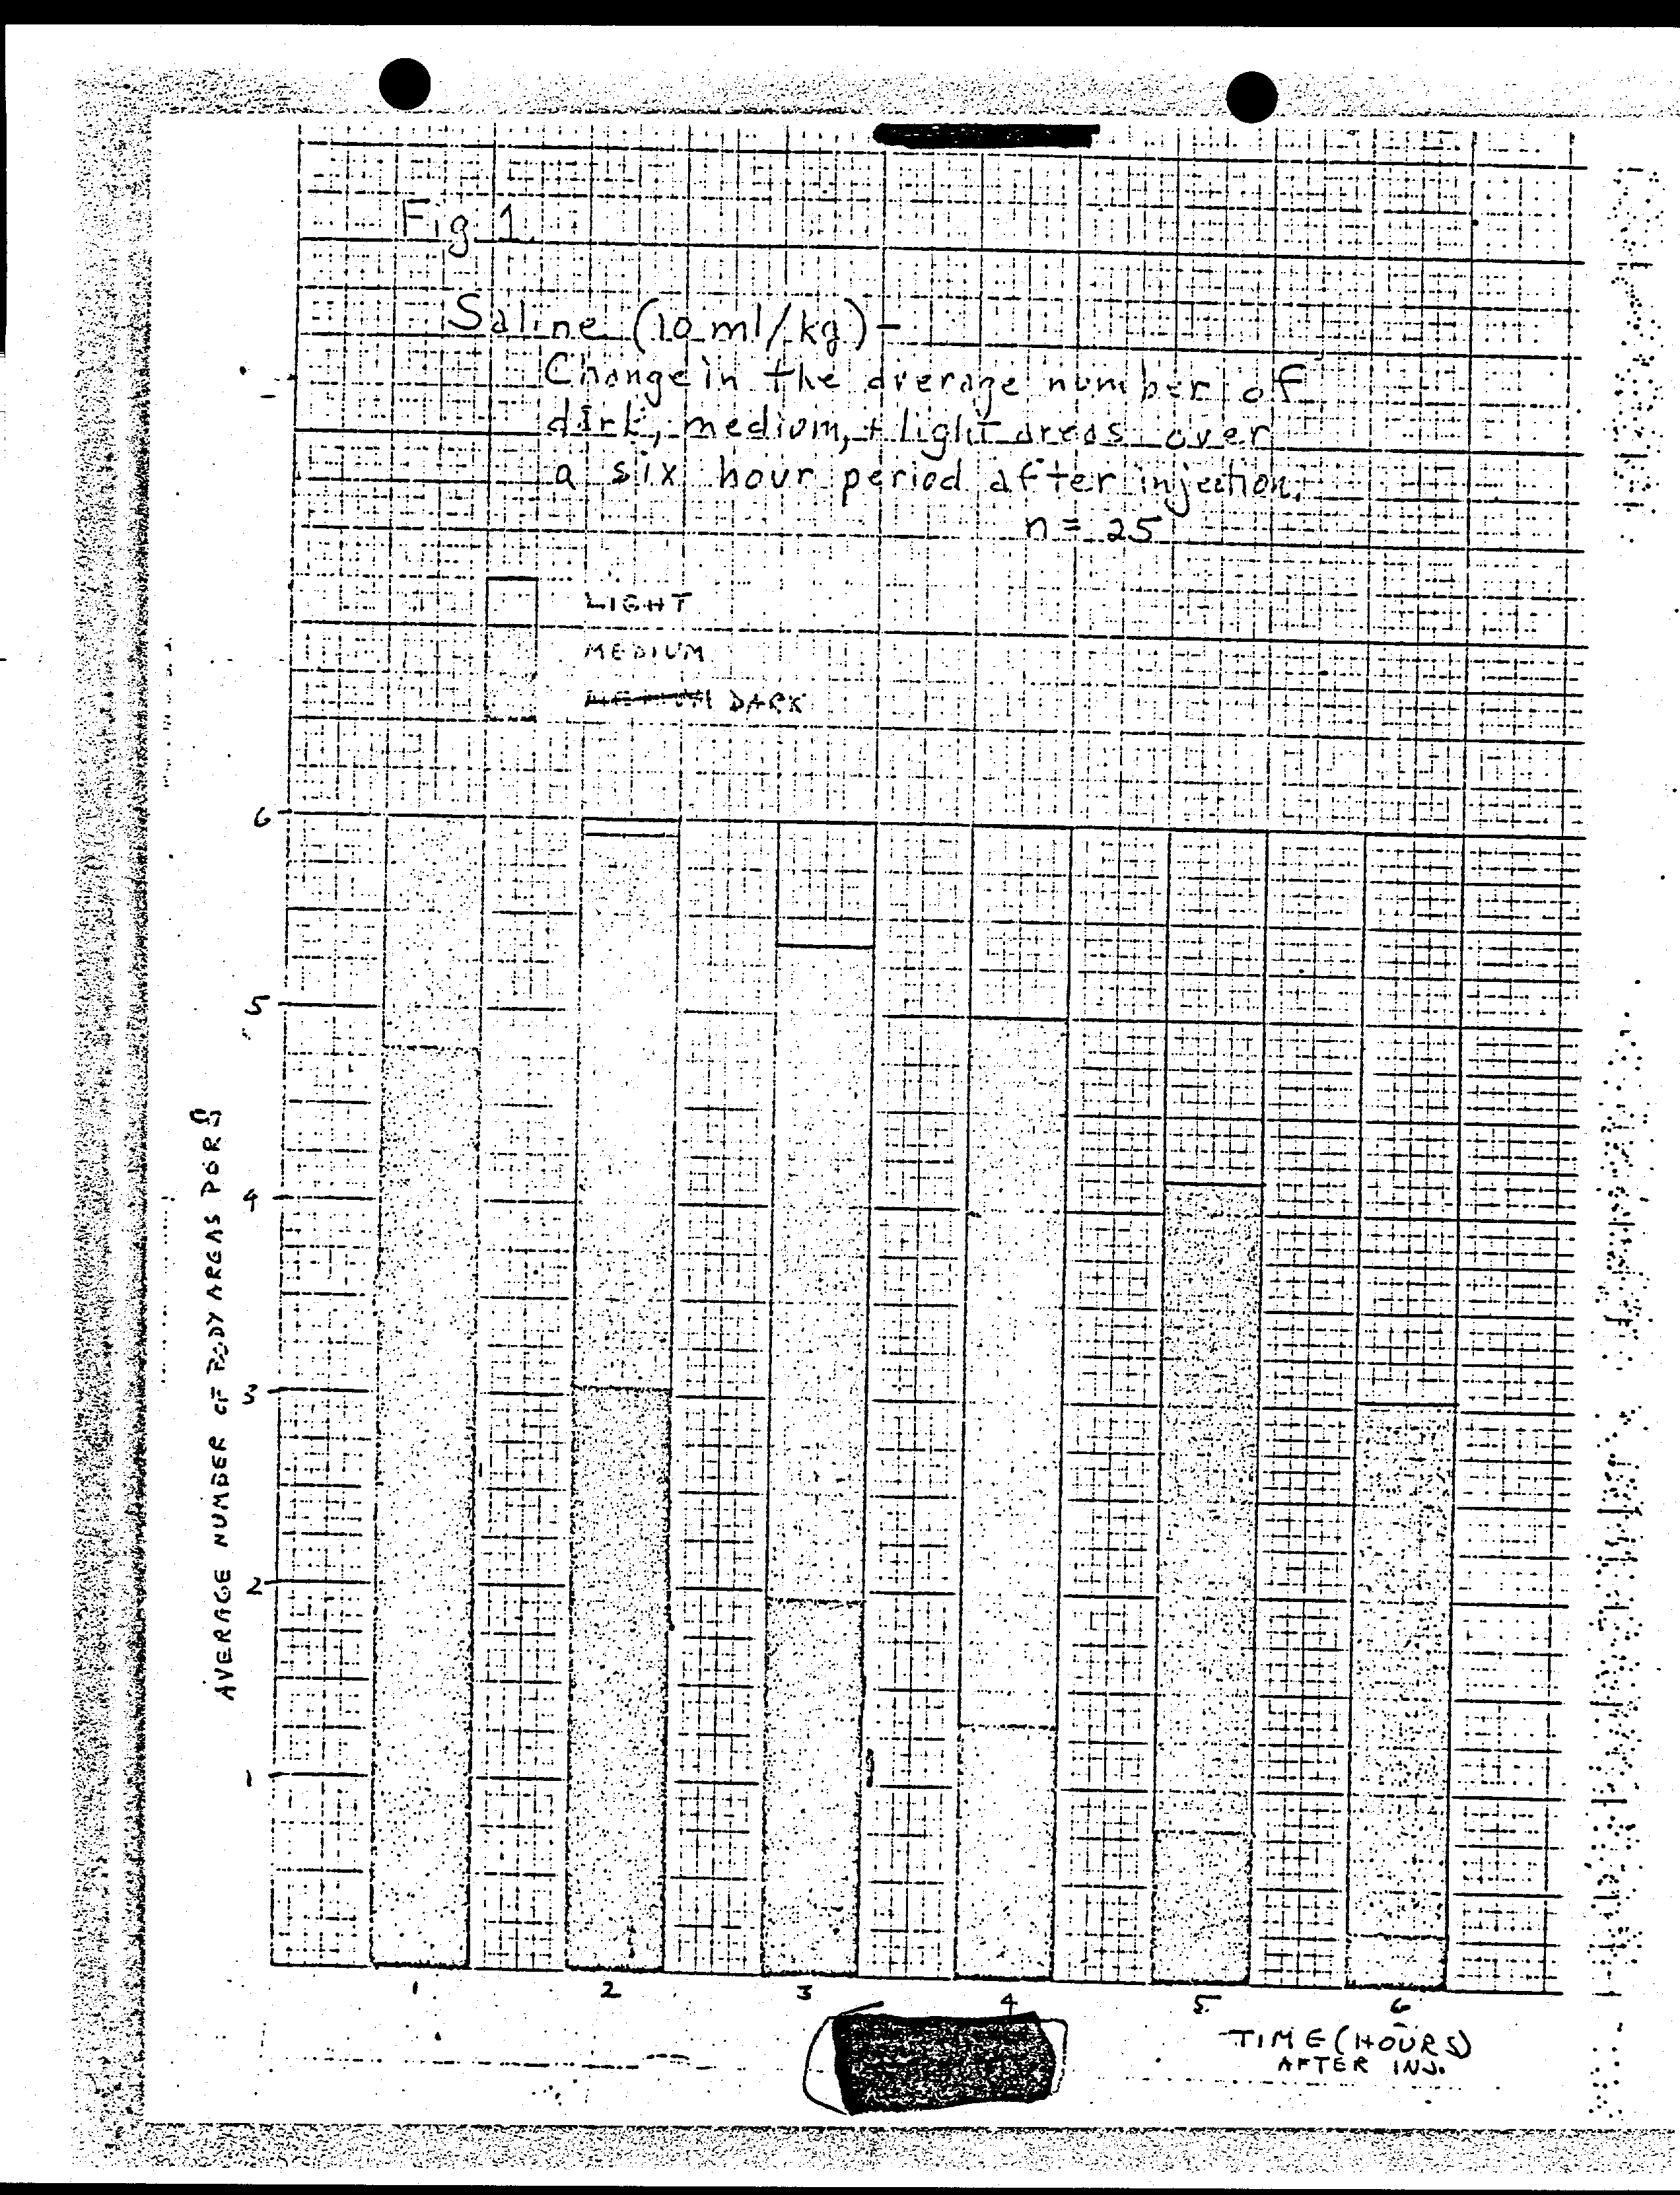 Fig 1
Saline (10 ml/kg) -
Change in the average number of
dark, medium, + light areas over
a six hour period after injection.
n = 25
LIGHT
MEDIUM
DARK
6
5
4
3
2
1
AVERAGE NUMBER OF BODY AREAS
1 2 3 4 5 6
TIME (HOURS)
AFTER INJ.